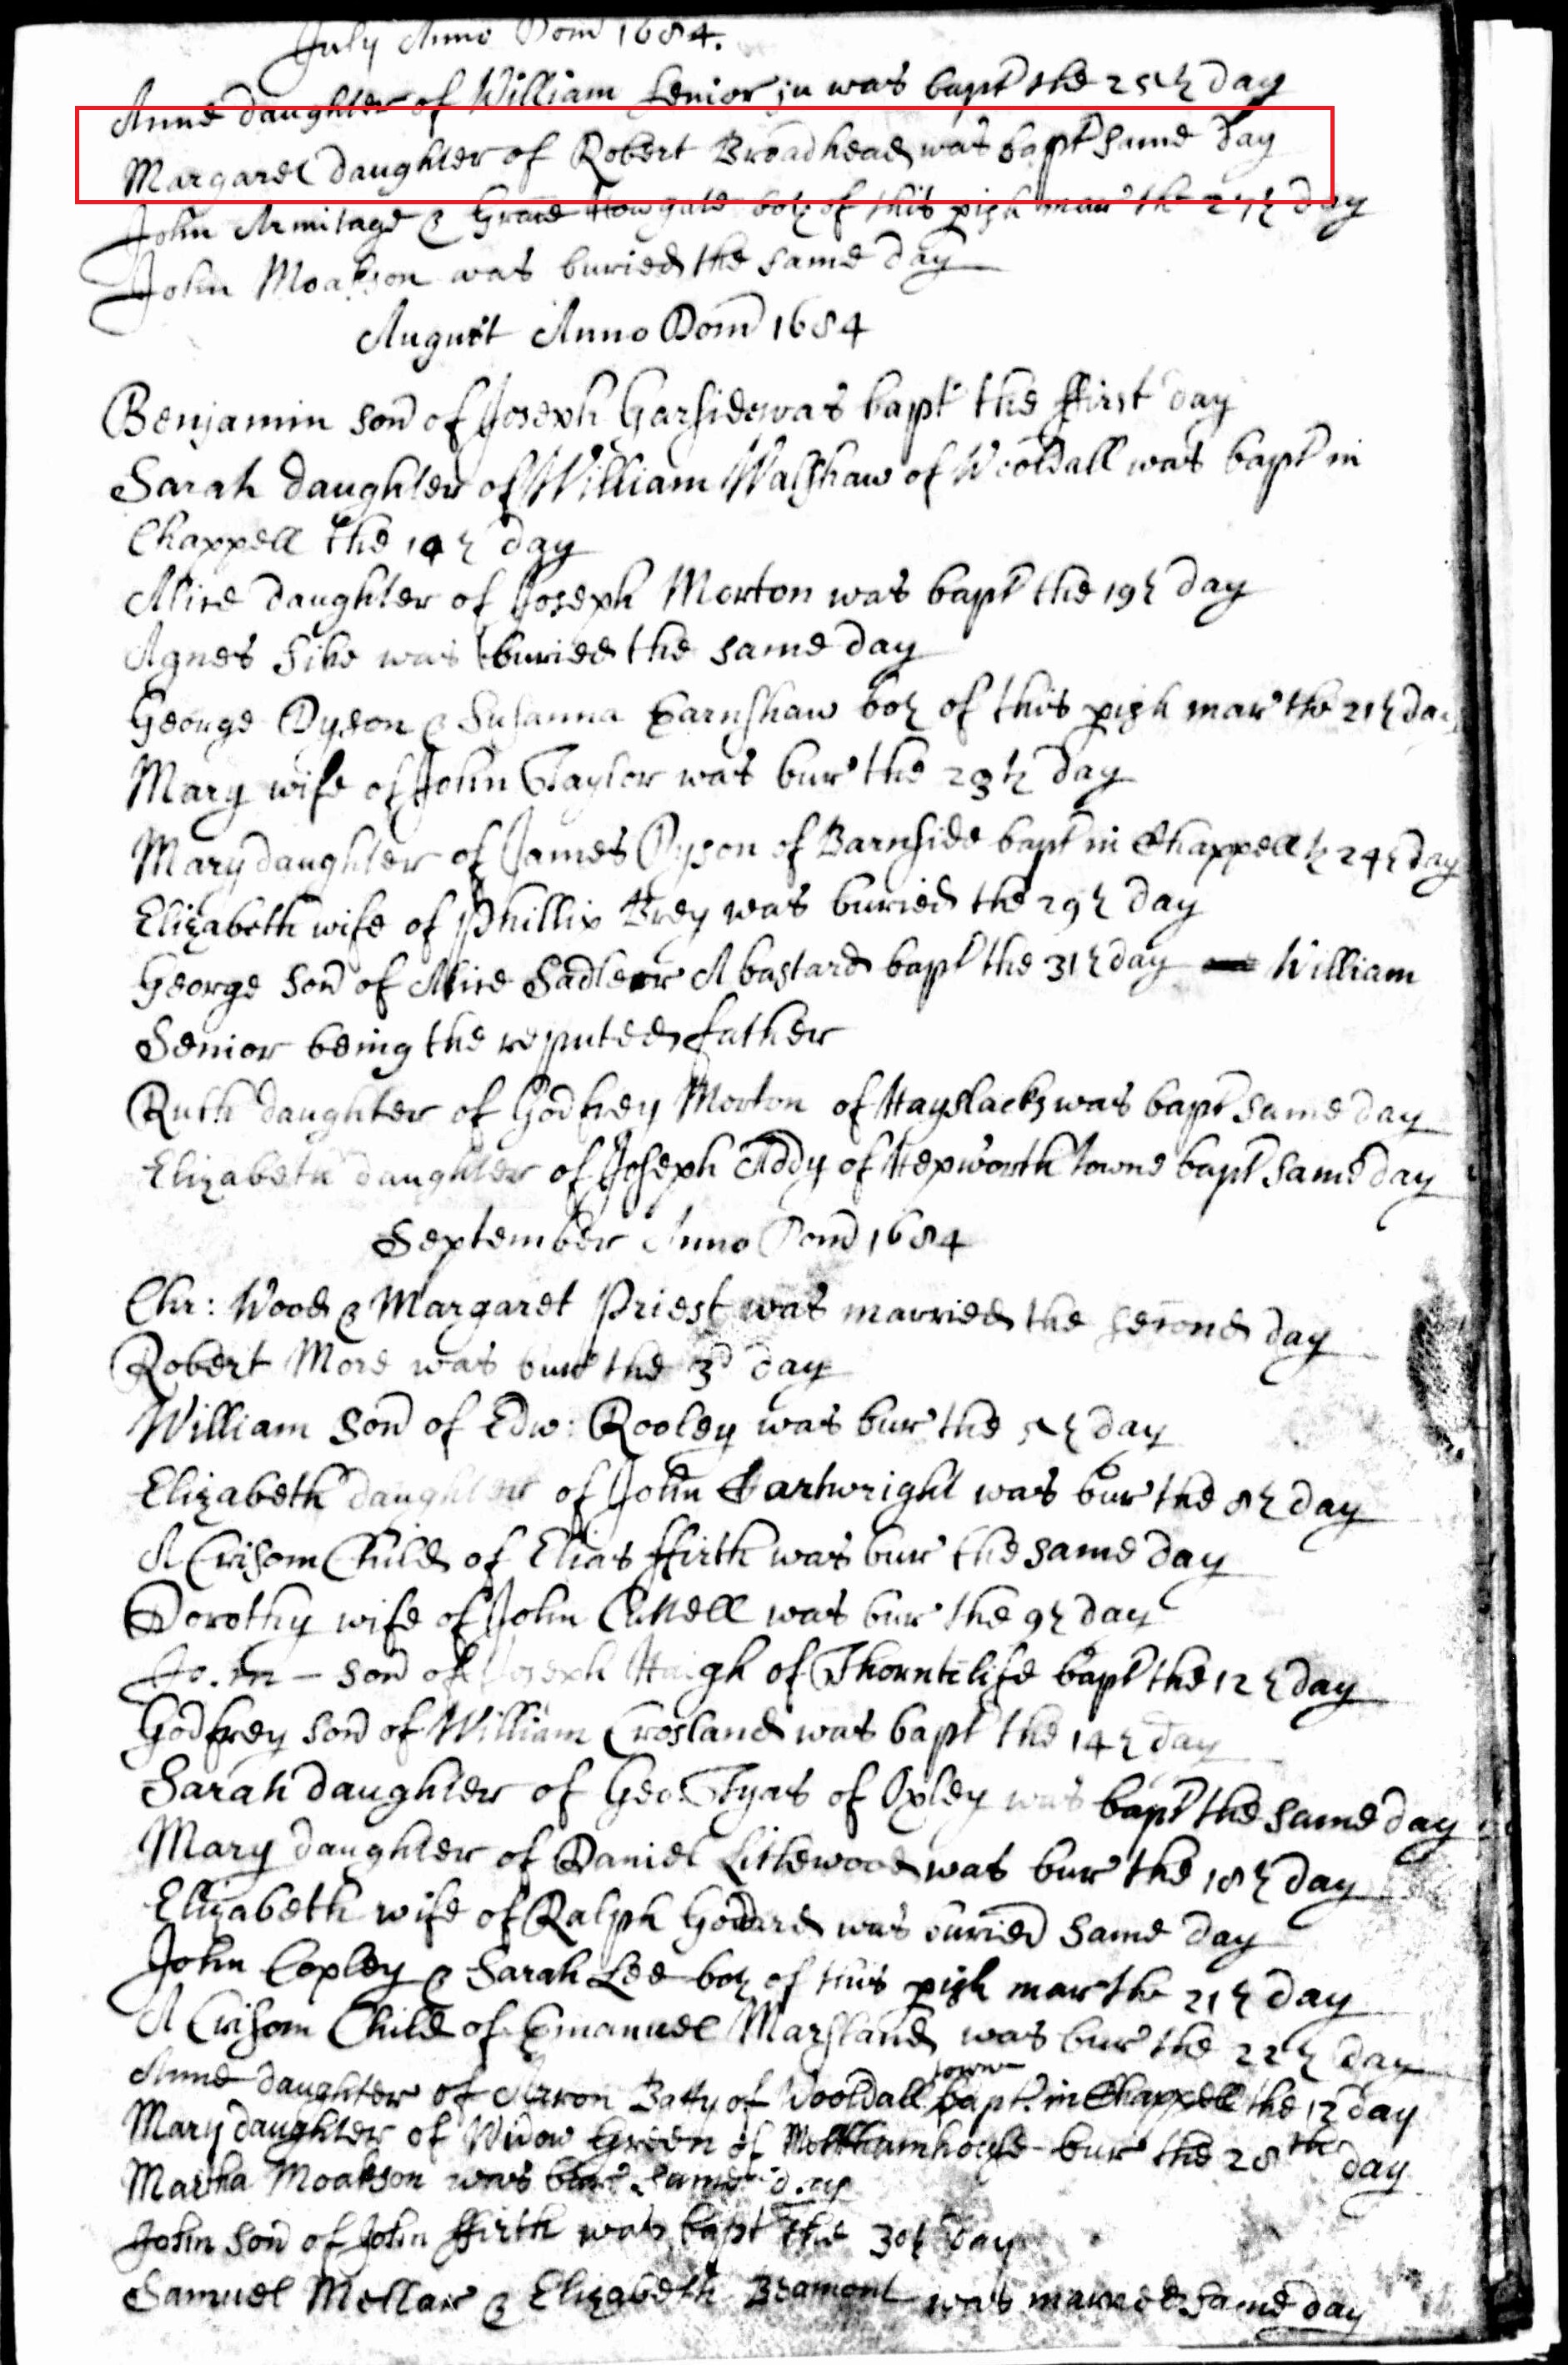 July Anno Dom 1684.
Anne daughter of William Senior ju was bapt the 25th day
Margaret daughter of Robert Broadhead was bapt same day
John Armitage & Grace Howgate both of this pish mar the 27th day
John Moakson was buried the same day
August Anno Dom 1684
Benjamin son of Joseph Garside was bapt the ffirst day
Sarah daughter of William Walshaw of Wooldall was bapt in
Chappell the 14th day
Alice daughter of Joseph Morton was bapt the 19th day
Agnes Sike was buried the same day
George Dyson & Susanna Earnshaw both of this pish mar the 21th day
Mary wife of John Taylor was bur the 23th day
Mary daughter of James Dyson of Barnside bapt in Chappell th 24th day
Elizabeth wife of Phillip Brey was buried the 29th day
George son of Alice Sadler A bastard bapt the 31th day William
Senior being the reputed father
Ruth daughter of Godfrey Morton of Hayslacks was bapt same day
Elizabeth daughter of Joseph Addy of Hepworth towne bapt same day
September Anno Dom 1684
Chr: Wood & Margaret Priest was married the second day
Robert More was bur the 3d day
William son of Edw: Rooley was bur the 5th day
Elizabeth daughter of John Cartwright was bur the 8th day
A Crisom Child of Elias ffirth was bur the same day
Dorothy wife of John Cuttell was bur the 9th day
John son of Joseph Haigh of Thorntclife bapt the 12th day
Godfrey son of William Crosland was bapt the 14th day
Sarah daughter of Geo: Tyas of Oxley was bapt the same day
Mary daughter of Daniel Litlewood was bur the 18th day
Elizabeth wife of Ralph Goddard was buried same day
John Copley & Sarah Lee both of this pish mar the 21th day
A Crisom Child of Emanuel Marsland was bur the 22th day
Anne daughter of Arron Batty of Wooldall towne bapt in Chappell the 12 day
Mary daughter of Widow Green of bur the 28th day
Martha Moakson was bur same day
John son of John ffirth was bapt the 30th day
Samuel Mellar & Elizabeth Beamont was married same day